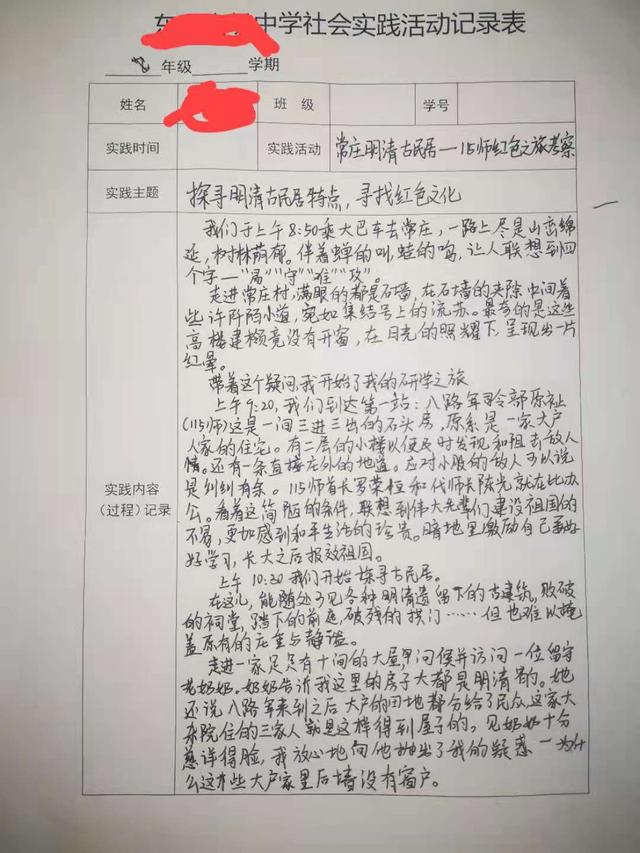 东 中学社会实践活动记录表
8 年级 学期
姓名 班 级 学号
实践时间 实践活动 常庄明清古民居—115师红色之旅考察
实践主题 探寻明清古民居特点，寻找红色文化
实践内容
（过程）记录
我们于上午8:50乘大巴车去常庄，一路上尽是山峦绵
延，树林荫郁。伴着蝉的叫，蛙的鸣，让人联想到四
个字—"易""守""难""攻"。
走进常庄村，满眼的都是石墙，在石墙的夹隙中间着
些许阡陌小道，宛如集结号上的流苏。最奇的是这些
高楼建檐竟没有开窗，在日光的照耀下，呈现出一片
红晕。
带着这个疑问，我开始了我的研学之旅
上午9:20，我们到达第一站：八路军司令部原祉
(115师)这是一间三进三出的石头房，原系是一家大户
人家的住宅。有二层的小楼以便及时发现和阻击敌人
情。还有一条直接庄外的地道。应对小股的敌人可以说
是纠纠有条。115师首长罗荣桓和代师长陈光就在此办
公。看着这简陋的条件，联想到伟大先辈们建设祖国的
不易，更加感到和平生活的珍贵。暗地里激励自己要好
好学习，长大之后报效祖国。
上午10:30我们开始探寻古民居。
在这儿，能随处可见各种明清遗留下的古建筑，败破
的祠堂，踏下的前庭，破残的拱门……但也难以掩
盖原有的庄重与静谧。
走进一家足足有十间的大屋，早问候并访问一位留守
老奶奶。奶奶告诉我这里的房子大都是明清的。她
还说八路军来到之后大户的田地都分给了民众，这家大
杂院住的三家人就是这样得到屋子的。见奶奶十分
慈详得脸，我放心地向他抛出了我的疑惑—为什
么这些大户家里后墙没有窗户。